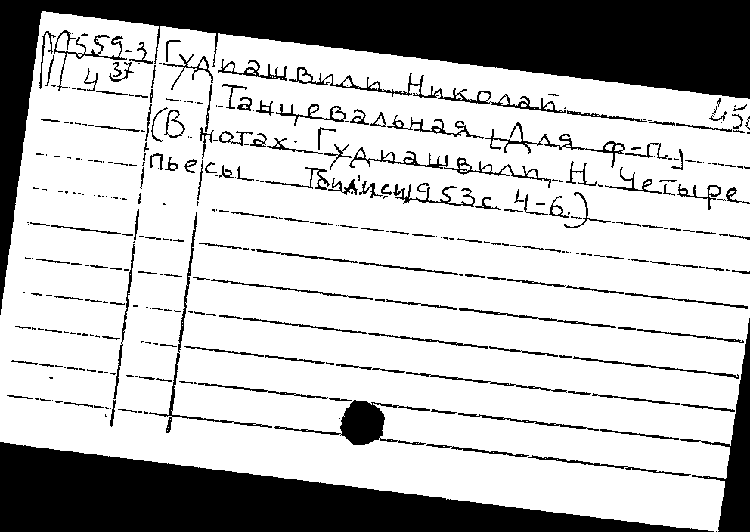 М 559-3 Гудиашвили, Николай
4 37
Танцевальная [Для ф-п.]
(В нотах: Гудиашвили, Н. Четыре
пьесы Тбилиси 1953 с 4-6.)